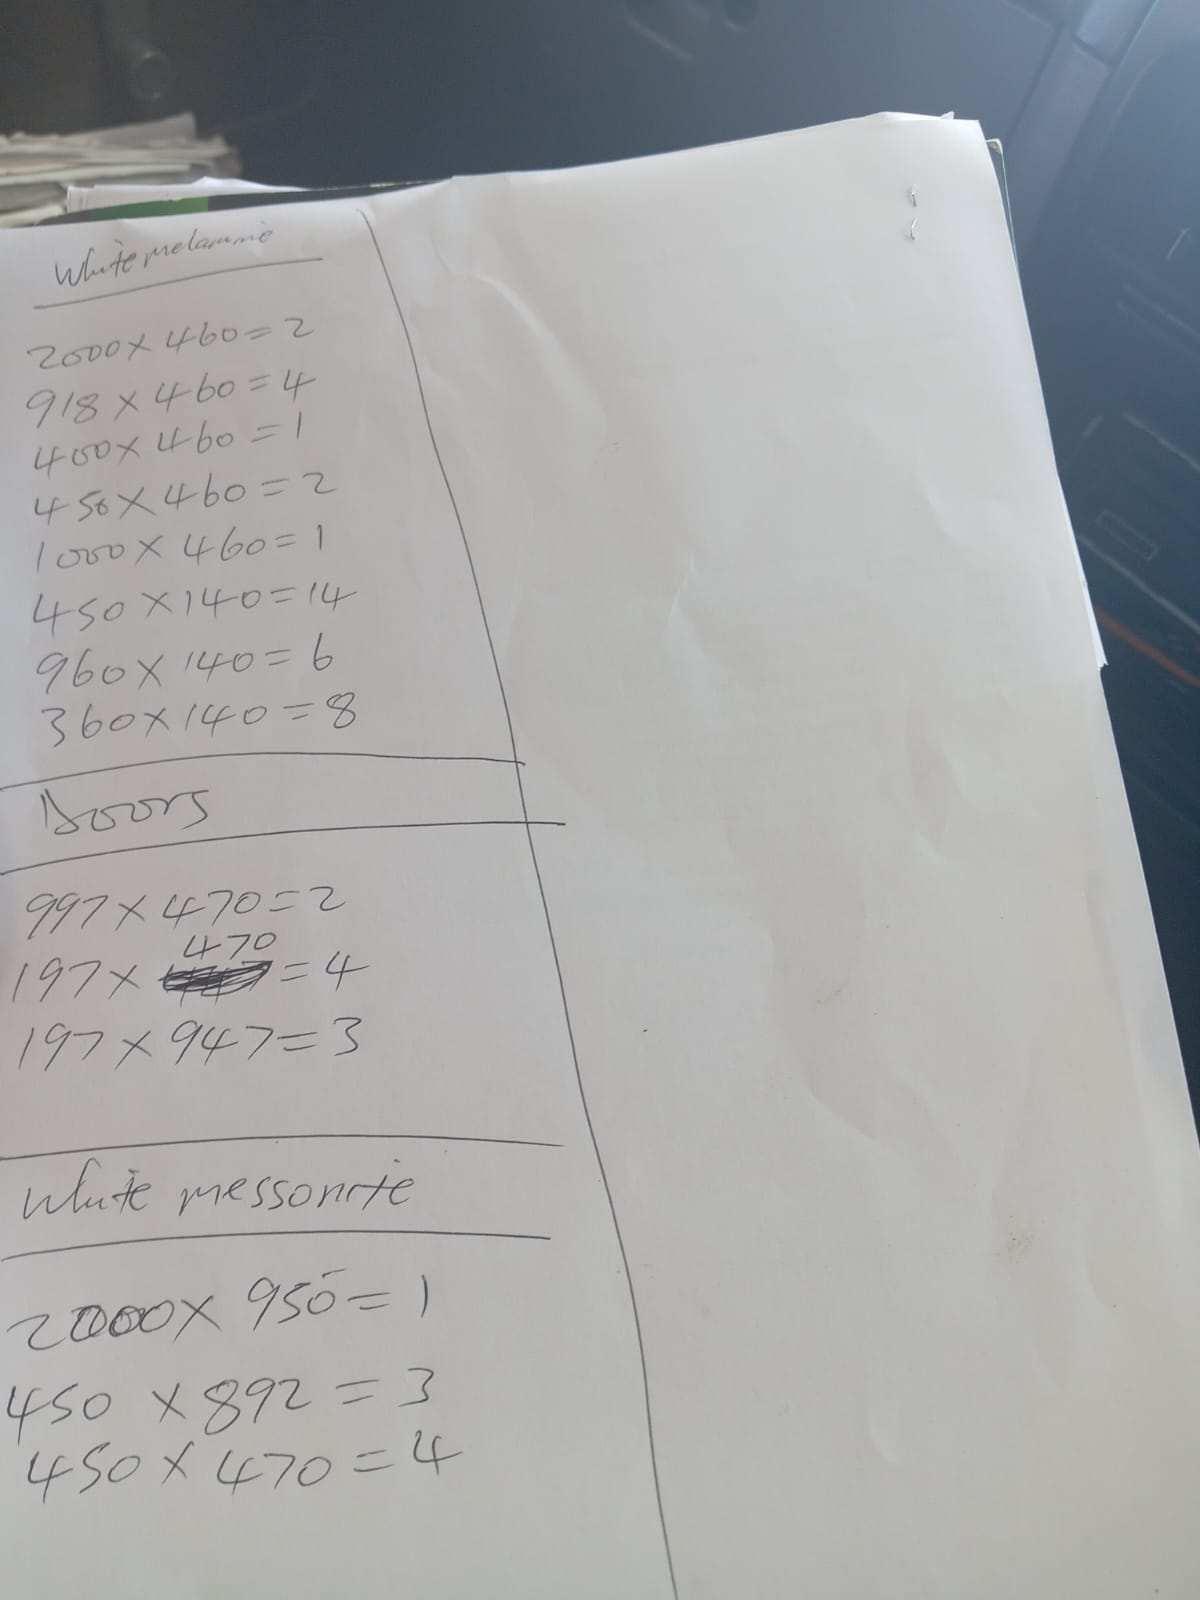 White melamine
2000 x 460 = 2
918 x 460 = 4
400 x 460 = 1
450 x 460 = 2
1000 x 460 = 1
450 x 140 = 14
960 x 140 = 6
360 x 140 = 8
Doors
997 x 470 = 2
197 x 470 = 4
197 x 947 = 3
White messonite
2000 x 950 = 1
450 x 892 = 3
450 x 470 = 4